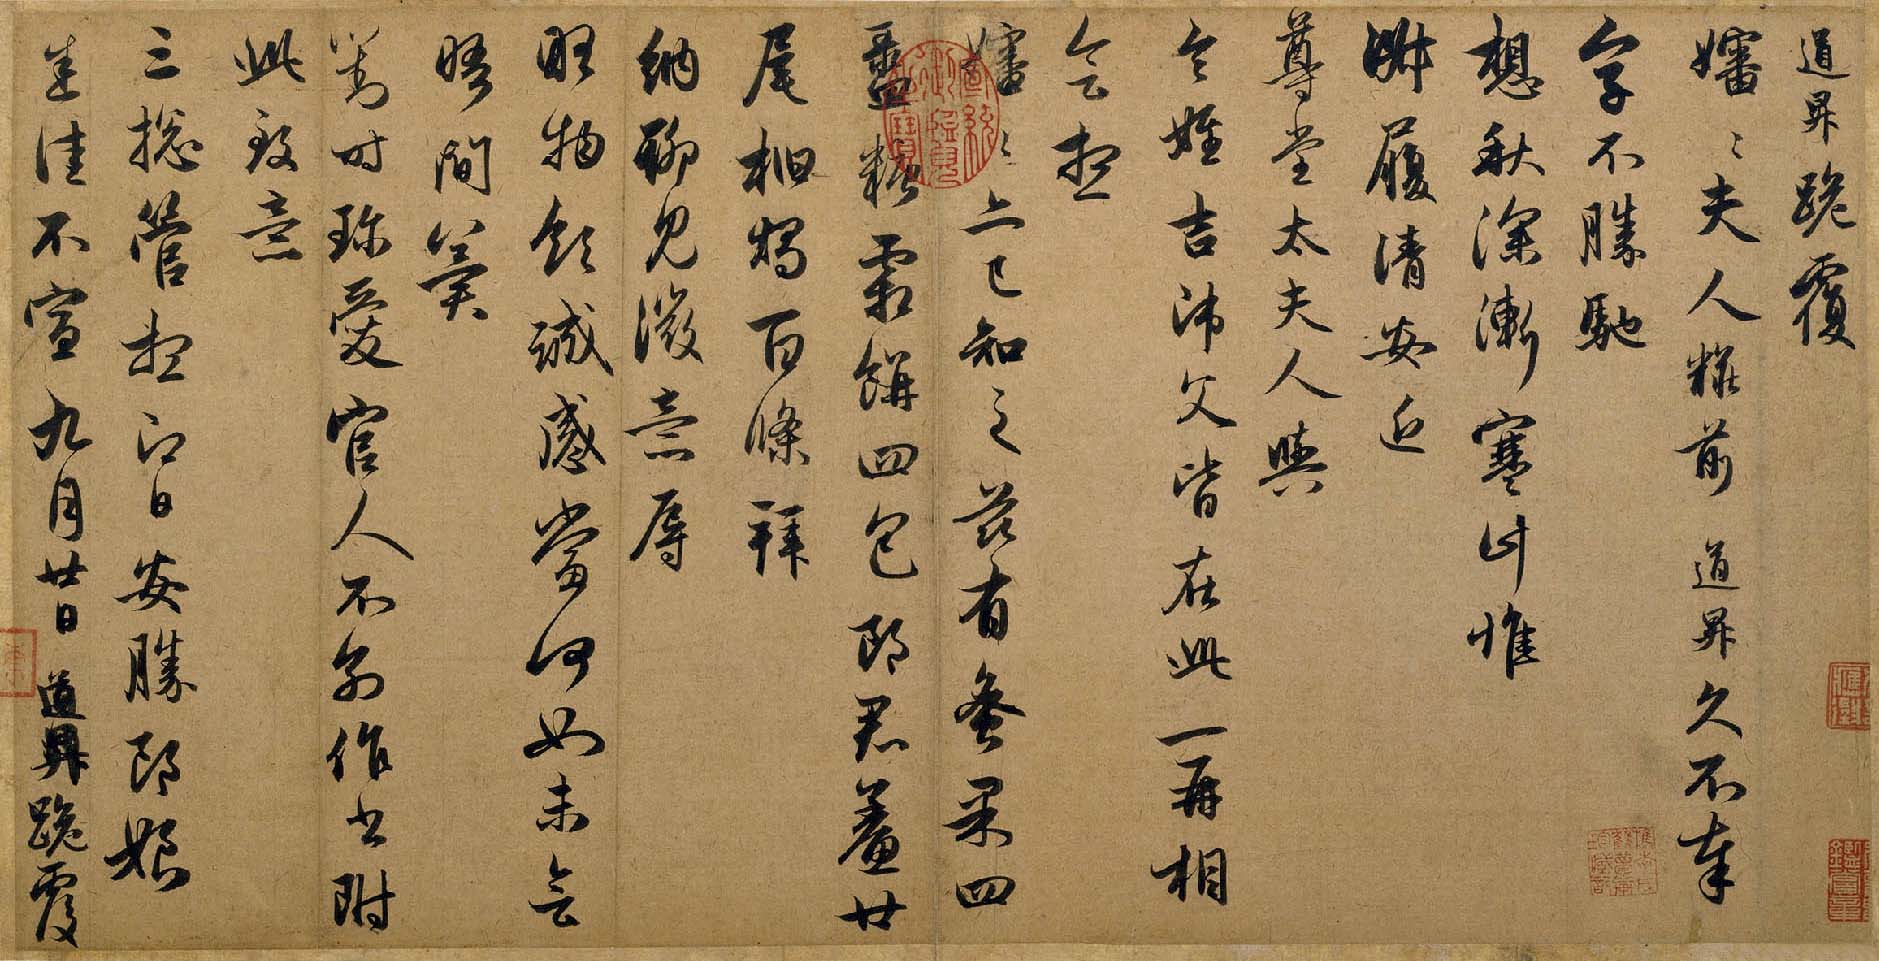 道昇跪覆
嬸〻夫人粧前道昇久不奉
字不勝馳
想秋深漸寒計惟
淑履清安近
尊堂太夫人與
令姪吉師父皆在此一再相
會想
嬸〻亦已知之茲有蚤果四
盝糖霜餅四包郎君鯗廿
尾柏燭百條拜
納聊見微意辱
略物領誠感當何如未會
晤間冀
對時珍愛官人不別作書附
此致意
三總管想即日安勝郎娘
悉佳不宣九月廿日道昇跪覆